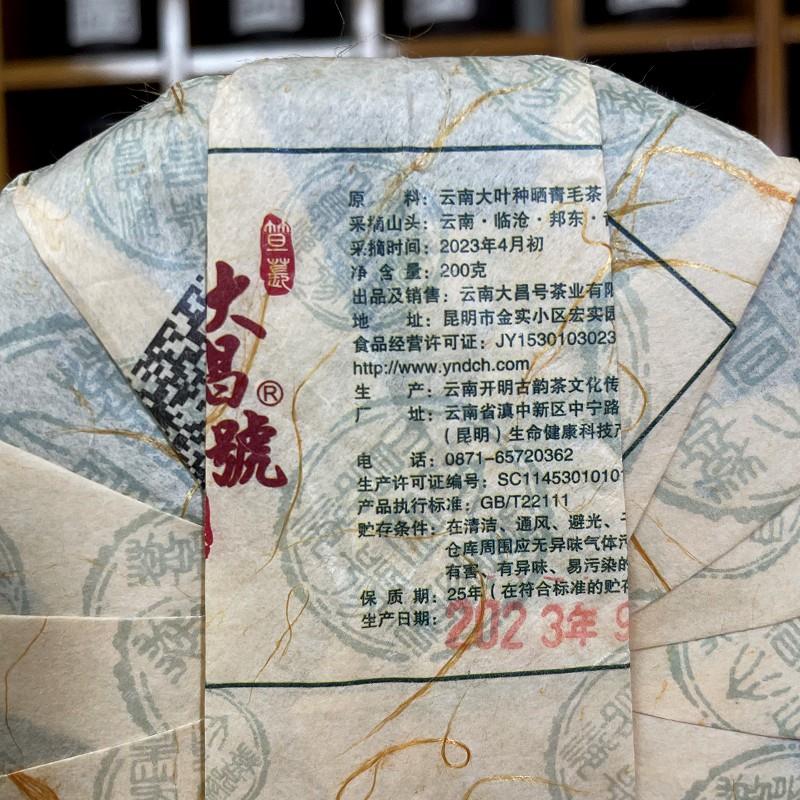 大昌號®
原 料：云南大叶种晒青毛茶
采摘山头：云南·临沧·邦东·
采摘时间：2023年4月初
净 含 量：200克
出品及销售：云南大昌号茶业有限
地 址：昆明市金实小区宏实园
食品经营许可证：JY1530103023
http://www.yndch.com
生 产：云南开明古韵茶文化传
厂 址：云南省滇中新区中宁路
（昆明）生命健康科技产
电 话：0871-65720362
生产许可证编号：SC11453010101
产品执行标准：GB/T22111
贮存条件：在清洁、通风、避光、干
仓库周围应无异味气体污
有害、有异味、易污染的
保 质 期：25年（在符合标准的贮存
生产日期：2023年9